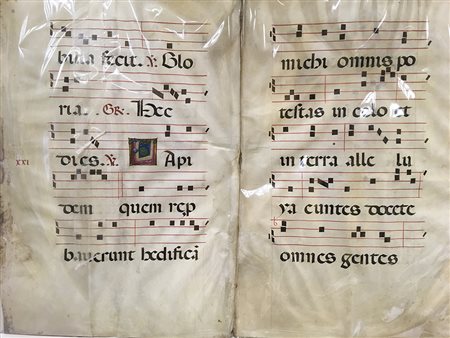 bilia fecit. ℣. Glo
ria. Gr. Hec
xxi
dies. ℣. L Api
dem quem rep
baverunt hedifica
michi omnis po
testas in celo et
in terra alle lu
ya euntes docete
omnes gentes